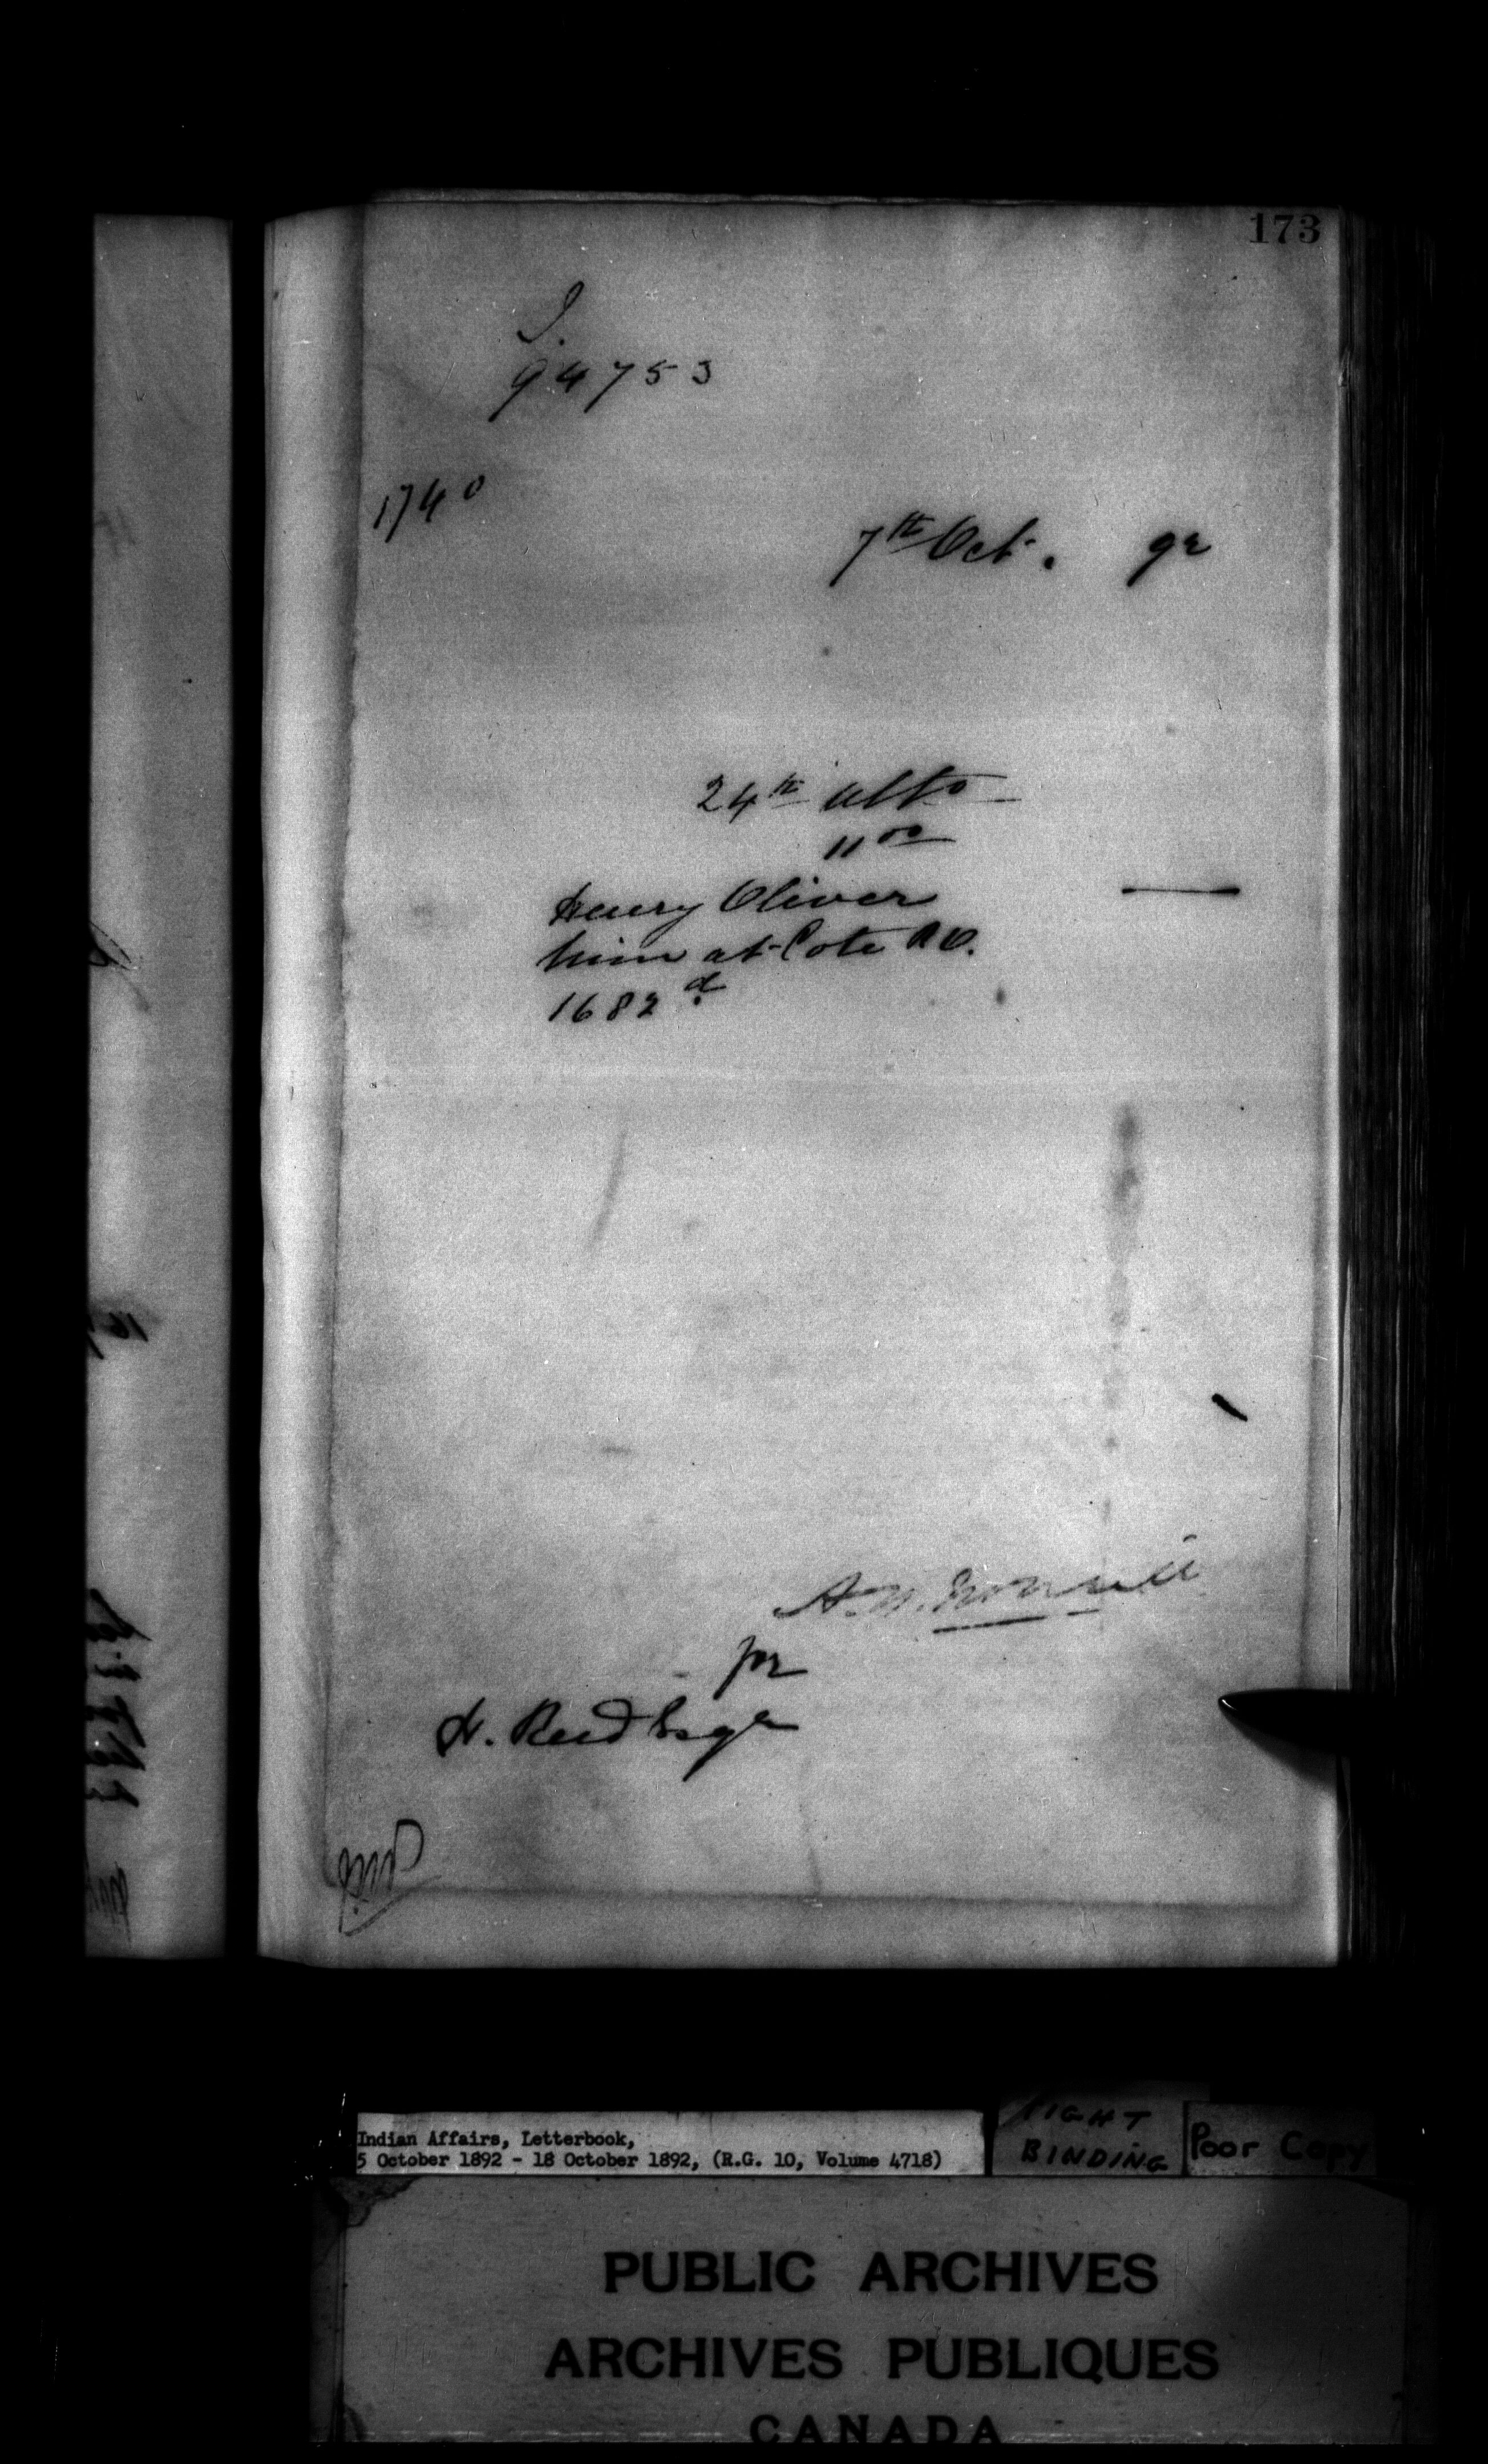 173
J.
94753
1740
7th Oct. 92
24th ulto
11 00
Henry Oliver
him at Cote R O.
1682 d
A. N. McNeill
pr
H. Reed Esqr
Indian Affairs, Letterbook,
5 October 1892 - 18 October 1892, (R.G. 10, Volume 4718)
TIGHT
BINDING
Poor Copy
PUBLIC ARCHIVES
ARCHIVES PUBLIQUES
CANADA